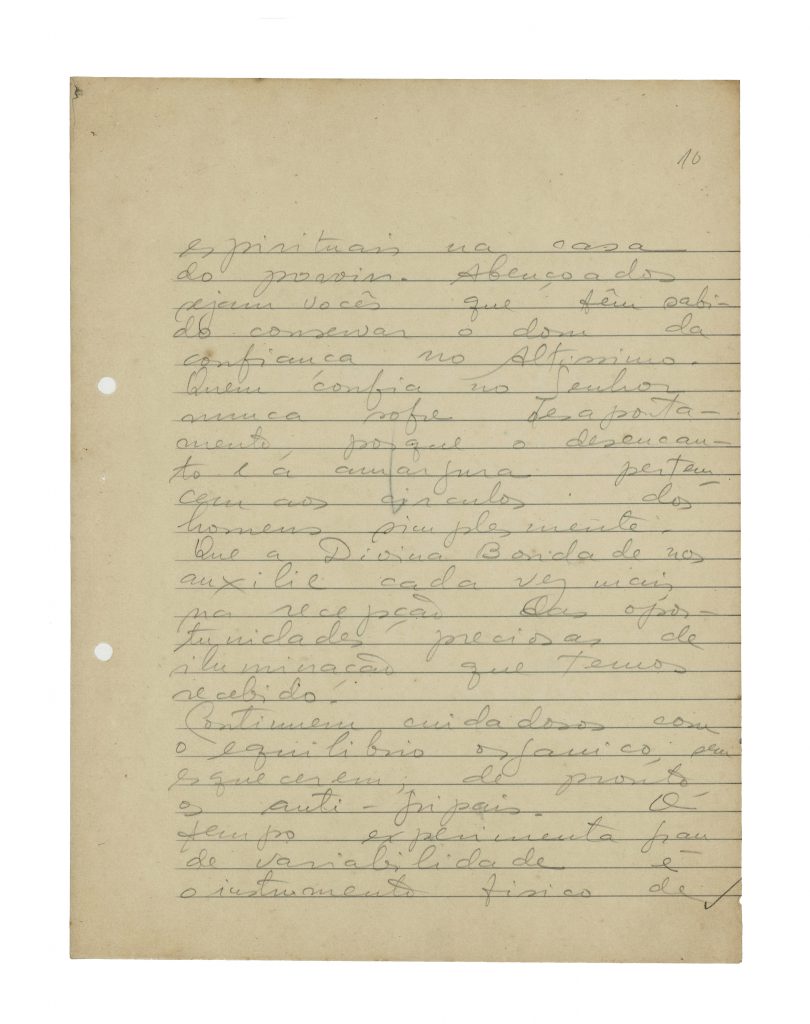 10
espirituais na casa
do porvir. Abençoados
sejam vocês que têm sabi-
do conservar o dom da
confiança no Altissimo.
Quem confia no Senhor
nunca sofre desaponta-
mento porque o desencan-
to e a amargura perten-
cem aos circulos dos
homens simplesmente.
Que a Divina Bondade nos
auxilie cada vez mais
na recepção das opor-
tunidades preciosas de
iluminação que temos
recebido.
Continuem cuidadosos com
o equilibrio organico, sem
esquecerem, de pronto
os anti-gripais. O
tempo experimenta gran
de variabilidade e
o instrumento fisico de